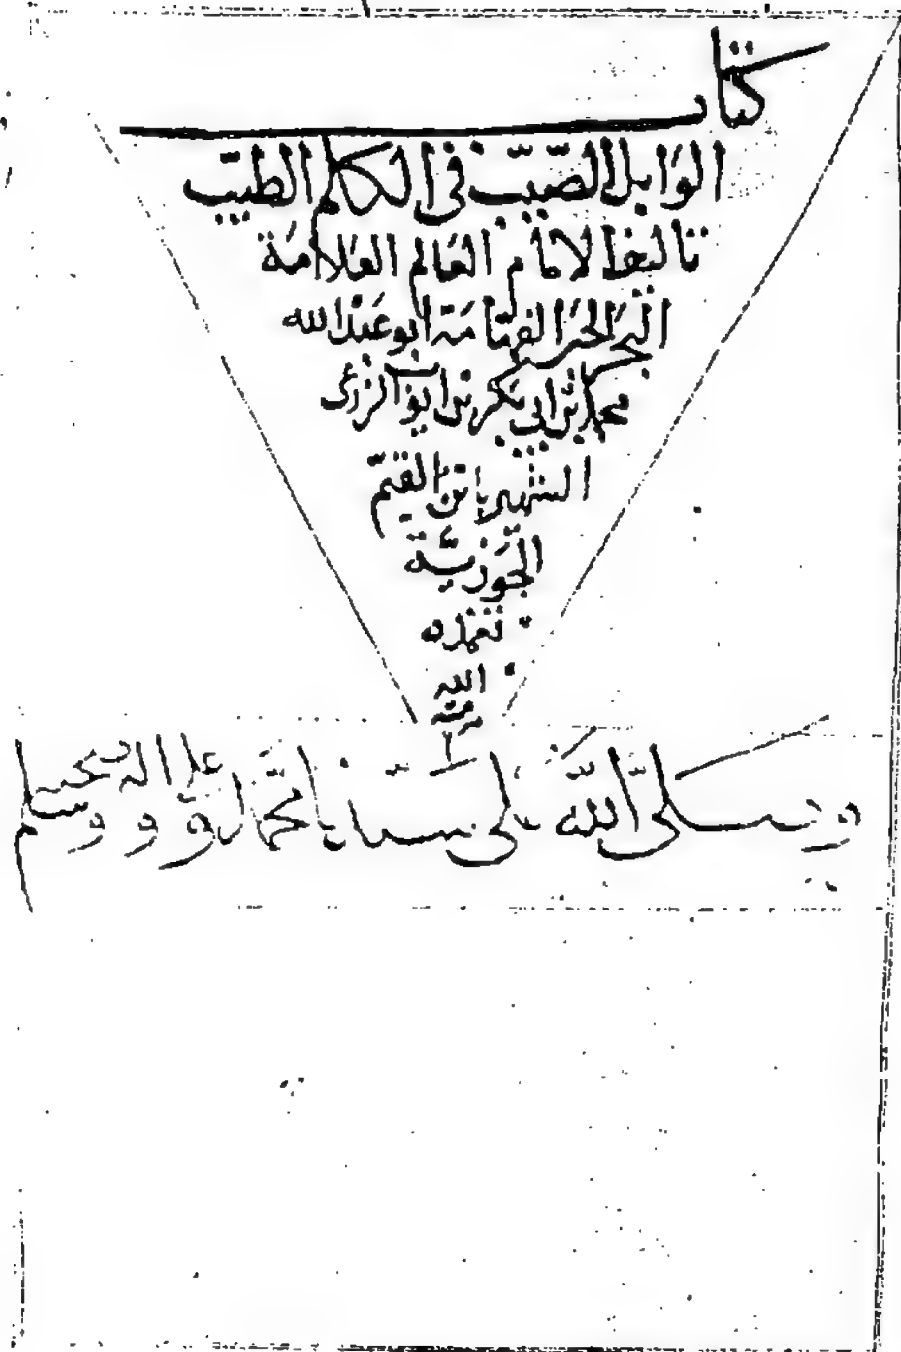 كتاب
الوابل الصيب في الكلم الطيب
تاليف الامام العالم العلامة
البحر الحبر الفهامة ابو عبد الله
محمد بن ابي بكر بن ايوب الزرعي
الشهير بابن القيم
الجوزية
تغمده
الله
برحمته
وصلى الله على سيدنا محمد وعلى اله وصحبه وسلم